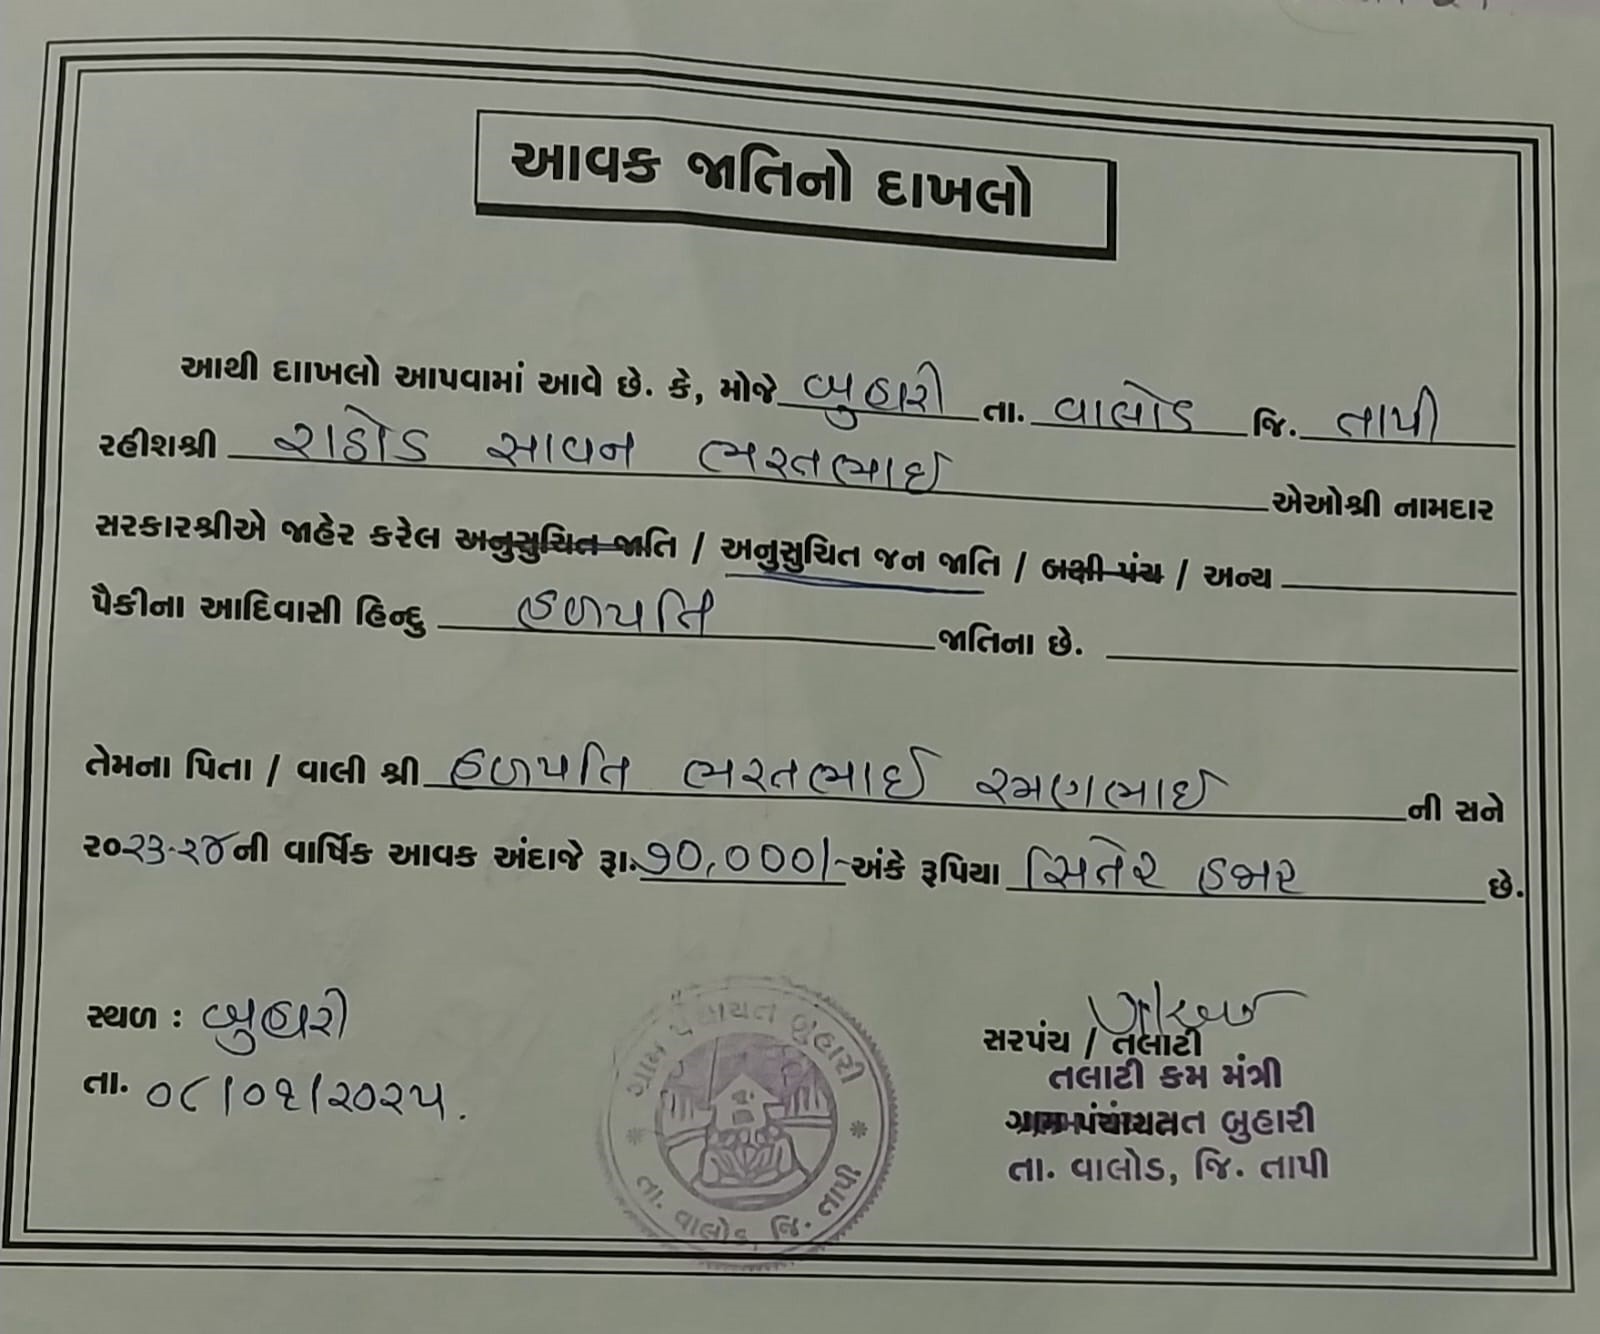 આવક જાતિનો દાખલો
આથી દાાખલો આપવામાં આવે છે. કે, મોજે બુહારી તા. વાલોડ જિ. તાપી
રહીશશ્રી રાઠોડ સાવન ભરતભાઈ એઓશ્રી નામદાર
સરકારશ્રીએ જાહેર કરેલ અનુસુચિત જાતિ / અનુસુચિત જન જાતિ / બક્ષી પંચ / અન્ય
પૈકીના આદિવાસી હિન્દુ હળપતિ જાતિના છે.
તેમના પિતા / વાલી શ્રી હળપતિ ભરતભાઈ રમણભાઈ ની સને
૨૦૨૩-૨૪ ની વાર્ષિક આવક અંદાજે રૂા. ૭૦,૦૦૦/- અંકે રૂપિયા સિતેર હજાર છે.
સ્થળ : બુહારી
તા. ૦૮/૦૧/૨૦૨૫.
ગ્રામ પંચાયત બુહારી
તા. વાલોડ, જિ. તાપી
સરપંચ / તલાટી
તલાટી કમ મંત્રી
ગ્રામ પંચાયત બુહારી
તા. વાલોડ, જિ. તાપી